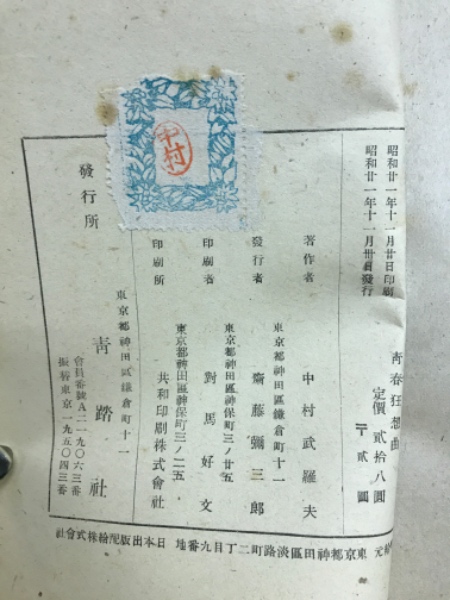 昭和廿一年十一月廿日印刷
昭和廿一年十一月卅日發行
青春狂想曲
定價 貳拾八圓
〒 貳圓
著作者 中村武羅夫
東京都神田區鎌倉町十一
發行者 齋藤彌三郎
東京都神田區神保町三ノ廿五
印刷者 對馬好文
東京都神田區神保町三ノ二五
印刷所 共和印刷株式會社
中村
發行所
東京都神田區鎌倉町十一
青踏社
會員番號A二一九〇六三番
振替東京一九五〇四三番
元 東京都神田區淡路町二丁目九番地 日本出版配給株式會社